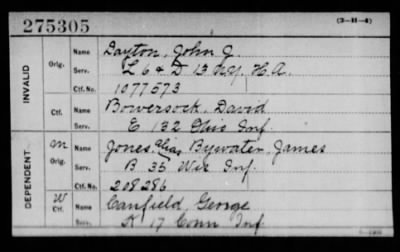 275305
(3-11-4)
INVALID
Orig.
Name Dayton, John J.
Serv. L 6 & D 13 N.Y. H.A.
Ctf. No. 1077573
Ctf.
Name Bowersock, David
Serv. E 132 Ohio Inf.
DEPENDENT
M
Orig.
Name Jones, alias Bywater, James
Serv. B 35 Wis Inf.
Ctf. No. 208286
W
Ctf.
Name Canfield George
Serv. K 17 Conn Inf.